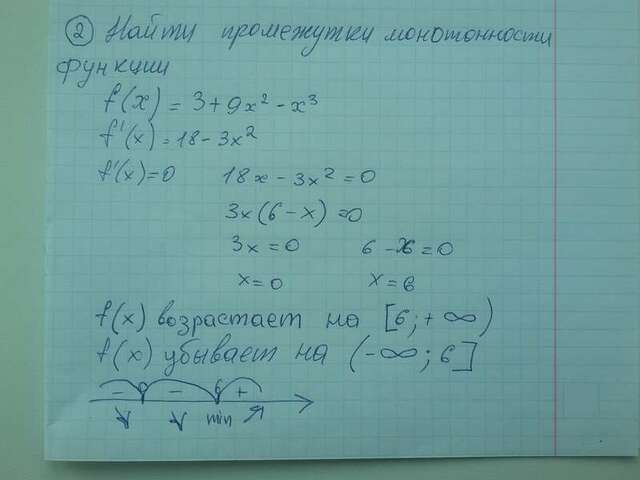 ② Найти промежутки монотонности
функции
f(x) = 3 + 9x² - x³
f'(x) = 18 - 3x²
f'(x) = 0 18x - 3x² = 0
3x(6 - x) = 0
3x = 0 6 - x = 0
x = 0 x = 6
f(x) возрастает на [6; + ∞)
f(x) убывает на (-∞; 6]
- 0 - 6 +
min